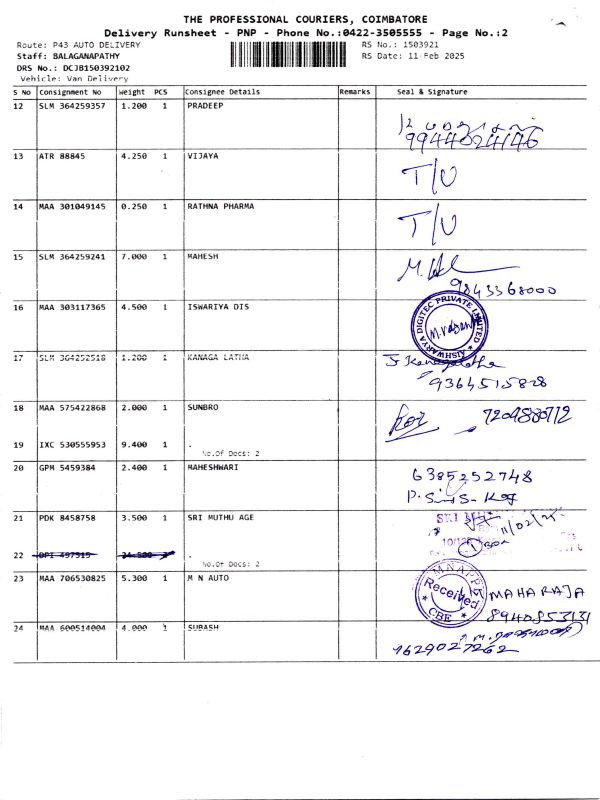 THE PROFESSIONAL COURIERS, COIMBATORE
Delivery Runsheet - PNP - Phone No.:0422-3505555 - Page No.:2
Route: P43 AUTO DELIVERY RS No.: 1503921
Staff: BALAGANAPATHY RS Date: 11-Feb 2025
DRS No.: DCJB150392102
Vehicle: Van Delivery
S No Consignment No Weight PCS Consignee Details Remarks Seal & Signature
12 SLM 364259357 1.200 1 PRADEEP
9944024146
13 ATR 88845 4.250 1 VIJAYA T/U
14 MAA 301049145 0.250 1 RATHNA PHARMA T/U
15 SLM 364259241 7.000 1 MAHESH
9843368000
16 MAA 303117365 4.500 1 ISWARIYA DIS
AISHWARYA DIGITEC PRIVATE LIMITED
17 SLM 364252518 1.200 1 KANAGA LATHA J Kanagalatha
9364515828
18 MAA 575422868 2.000 1 SUNBRO 7204880712
19 IXC 530555953 9.400 1 .
No.Of Docs: 2
20 GPM 5459384 2.400 1 MAHESHWARI 6385252748
21 PDK 8458758 3.500 1 SRI MUTHU AGE SRI
11/02/25
22 OPI 497515 34.500 .
No.Of Docs: 2
23 MAA 706530825 5.300 1 M N AUTO Received CBE MAHARAJA
8940853131
24 MAA 600514004 4.000 1 SUBASH
9629027262